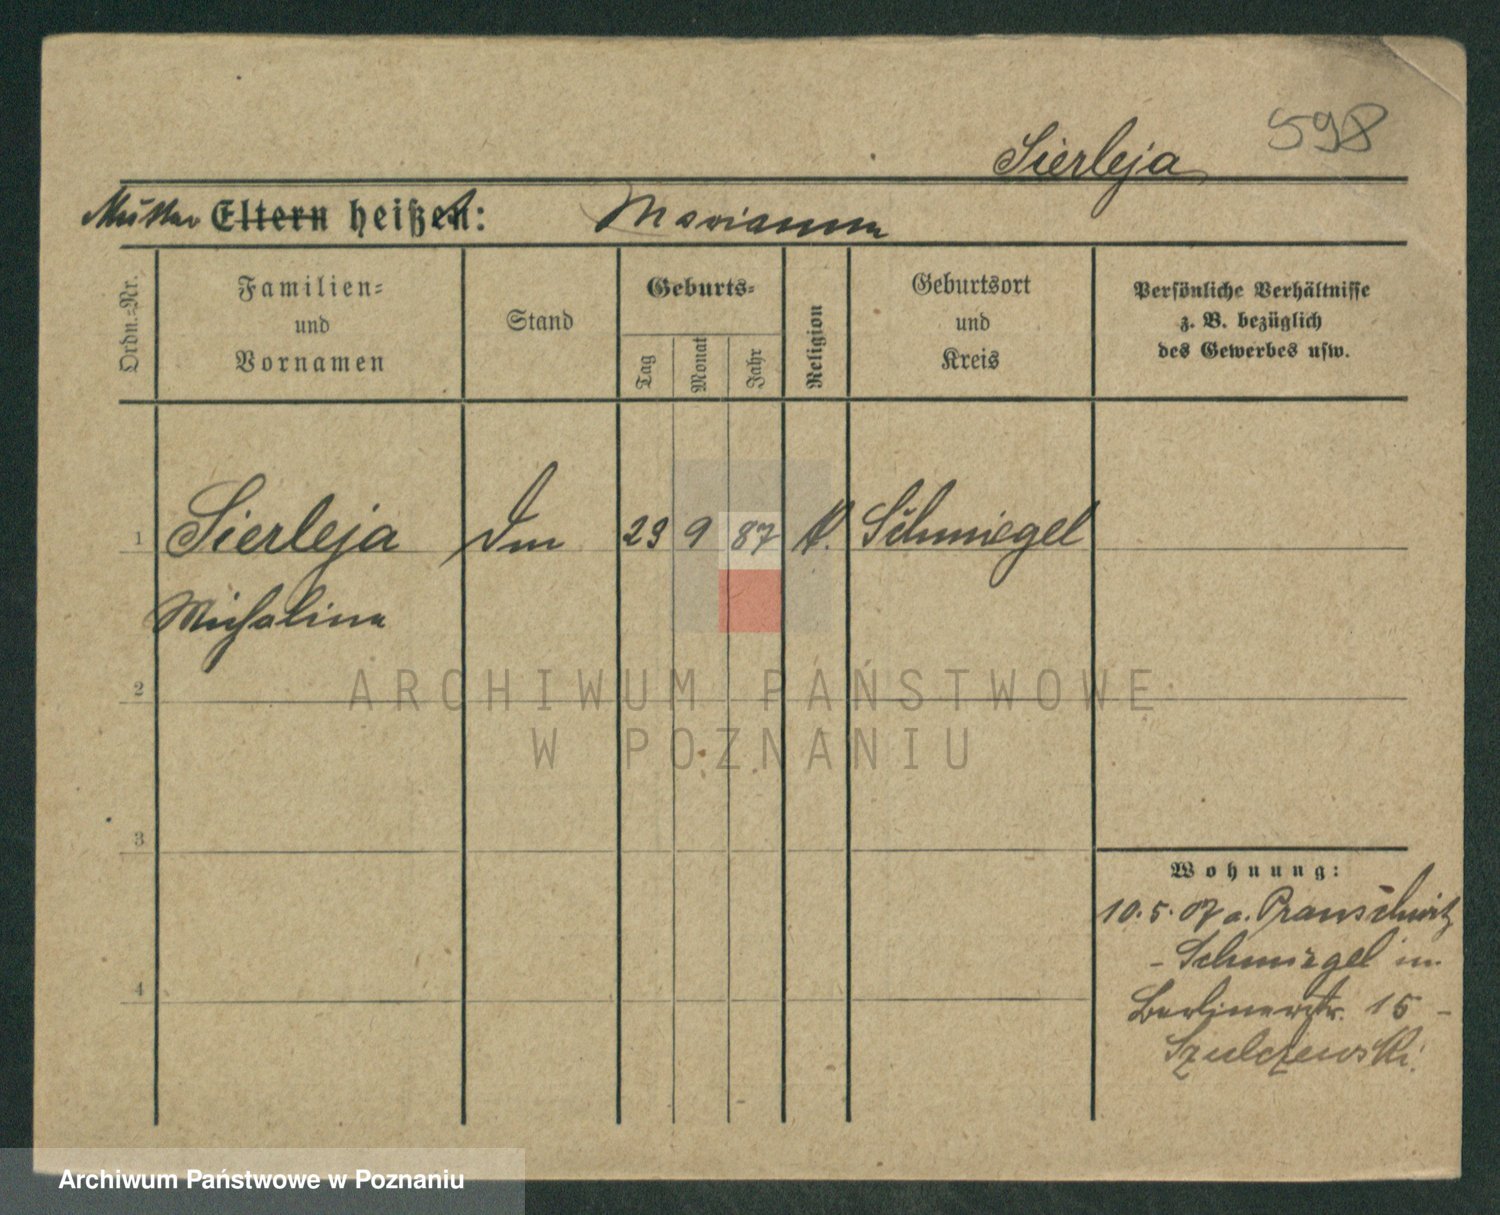 598
Sierleja
Mutter Eltern heißen: Marianna
Ordn.-Nr.
Familien-
und
Vornamen
Stand
Geburts-
Tag
Monat
Jahr
Religion
Geburtsort
und
Kreis
Persönliche Verhältnisse
z. B. bezüglich
des Gewerbes usw.
1 Sierleja 29 9 87 k. Schmiegel
Michalina
2
3
4
Wohnung:
10.5.07 a.
- Schmiegel in
Berlinerstr. 15 -
Szulczewski.
ARCHIWUM PAŃSTWOWE
W POZNANIU
Archiwum Państwowe w Poznaniu